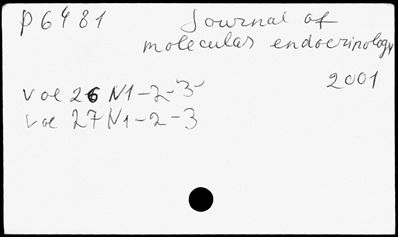 P6481
Journal of
molecular endocrinology
2001
Vol 26 N1-2-3
Vol 27 N1-2-3